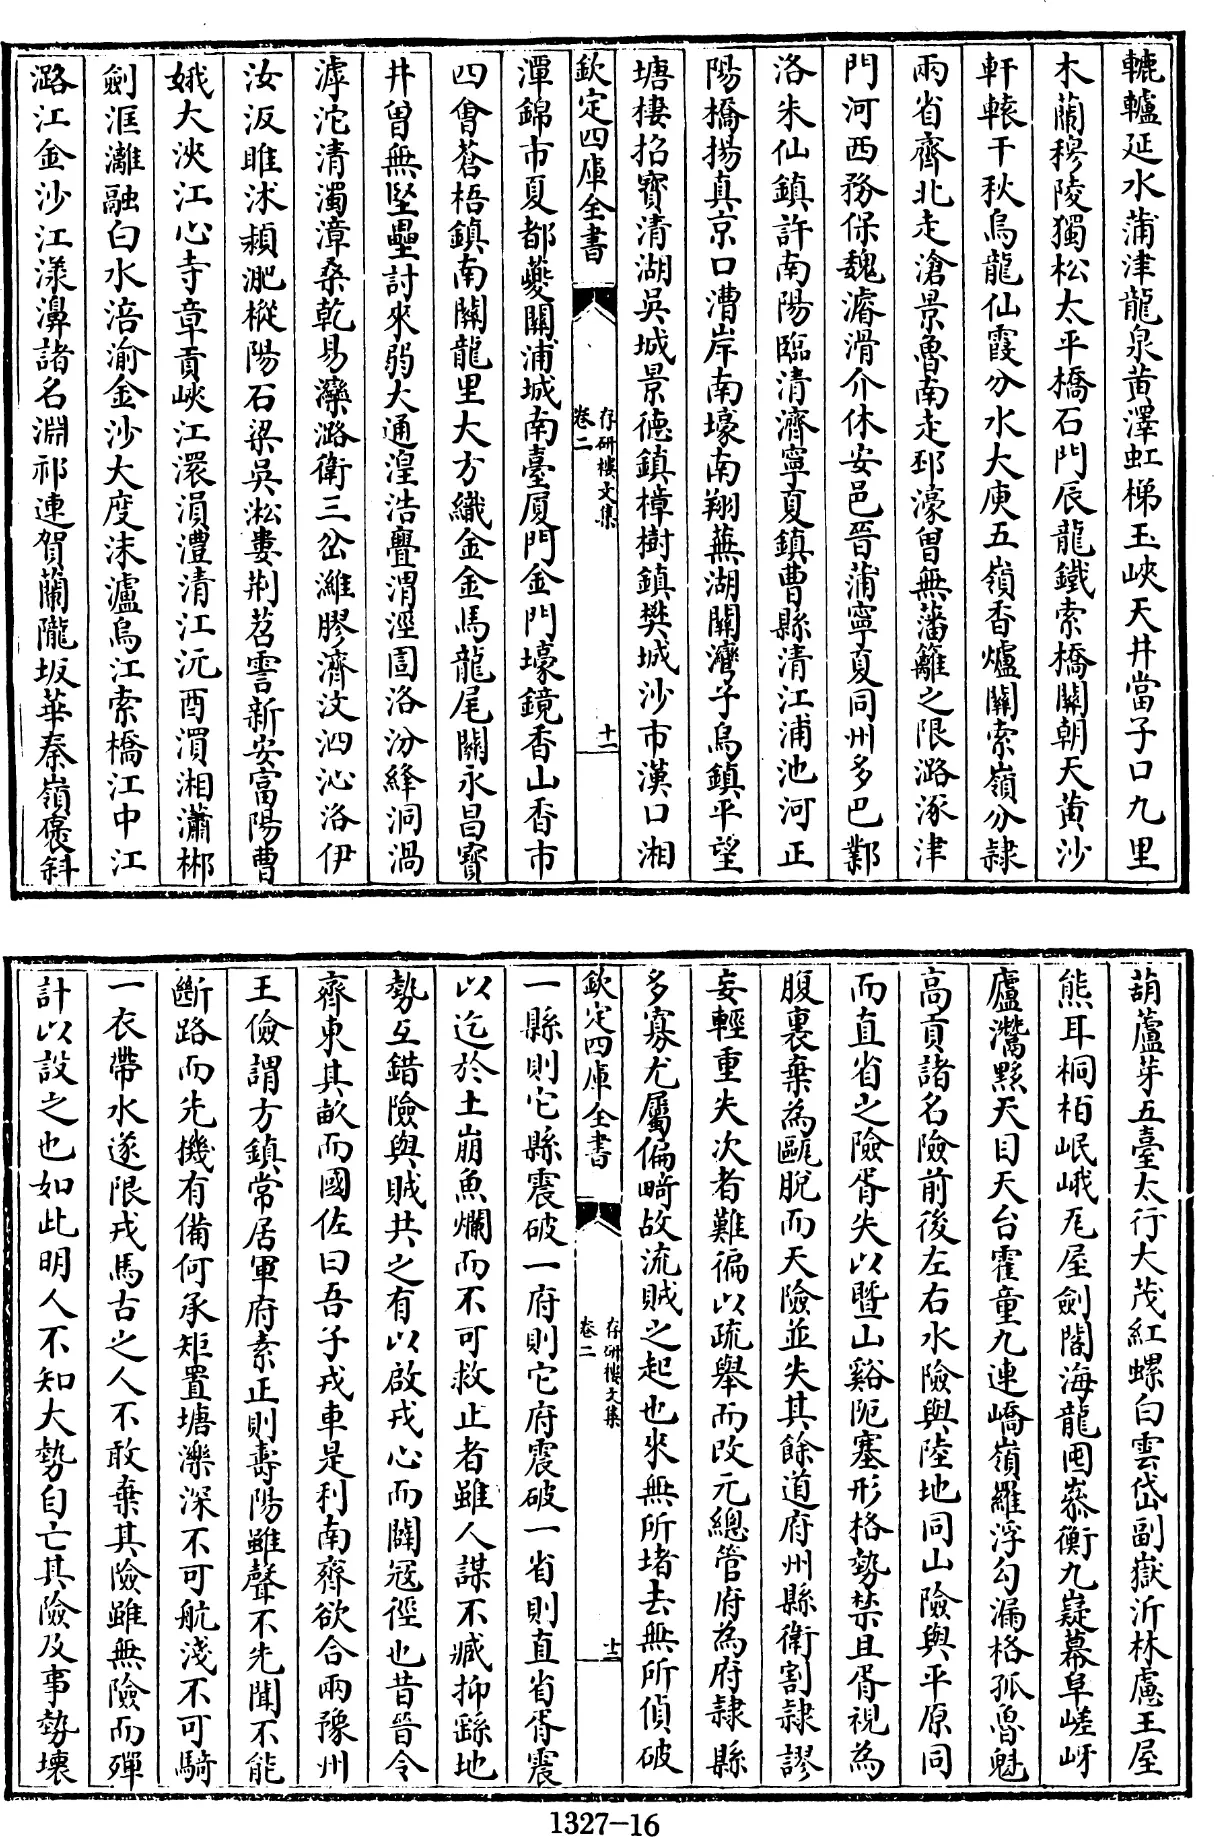 轆轤延水蒲津龍泉黄澤虹梯玉峽天井當子口九里
木蘭穆陵獨松太平橋石門辰龍鐵索橋關朝天黄沙
軒轅千秋烏龍仙霞分水大庾五嶺香爐關索嶺分隸
兩省齊北走滄景魯南走邳濠曽無藩籬之限潞涿津
門河西務保魏濬滑介休安邑晉蒲寧夏同州多巴鄴
洛朱仙鎮許南陽臨清濟寧夏鎮曹縣清江浦池河正
陽橋揚真京口漕岸南壕南翔蕪湖關灣子烏鎮平望
塘棲招寶清湖吳城景德鎮樟樹鎮樊城沙市漢口湘
欽定四庫全書
存研樓文集
卷二
十一
潭錦市夏都夔關浦城南臺厦門金門壕鏡香山香市
四會蒼梧鎮南關龍里大方織金金馬龍尾關永昌寶
井曽無堅壘討來弱大通湟浩亹渭涇圁洛汾絳洞渦
滹沱清濁漳桑乾易灤潞衛三岔濰膠濟汶泗沁洛伊
汝汳睢沭潁淝樅陽石梁吳淞婁荆苕霅新安富陽曹
娥大浹江心寺章貢峽江澴涢澧清江沅酉溳湘瀟郴
劍滙灕融白水涪渝金沙大度沬瀘烏江索橋江中江
潞江金沙江漾濞諸名淵祁連賀蘭隴坂華秦嶺褒斜
葫蘆芽五臺太行大茂紅螺白雲岱副嶽沂林慮王屋
熊耳桐柏岷峨尾屋劍閣海龍囤嵾衡九嶷幕阜嵯岈
廬灊黟天目天台霍童九連嶠嶺羅浮勾漏格孤魯魁
高貢諸名險前後左右水險與陸地同山險與平原同
而直省之險胥失以暨山谿阨塞形格勢禁且胥視為
腹裏棄為甌脱而天險並失其餘道府州縣衛割隸謬
妄輕重失次者難徧以疏舉而改元總管府為府隸縣
多寡尤屬偏畸故流賊之起也來無所堵去無所偵破
欽定四庫全書
存研樓文集
卷二
十二
一縣則它縣震破一府則它府震破一省則直省胥震
以迄於土崩魚爛而不可救止者雖人謀不臧抑繇地
勢互錯險與賊共之有以啟戎心而闢冦徑也昔晉令
齊東其畝而國佐曰吾子戎車是利南齊欲合兩豫州
王儉謂方鎮常居軍府素正則壽陽雖聲不先聞不能
斷路而先機有備何承矩置塘濼深不可航淺不可騎
一衣帶水遂限戎馬古之人不敢棄其險雖無險而殫
計以設之也如此明人不知大勢自亡其險及事勢壞
1327-16